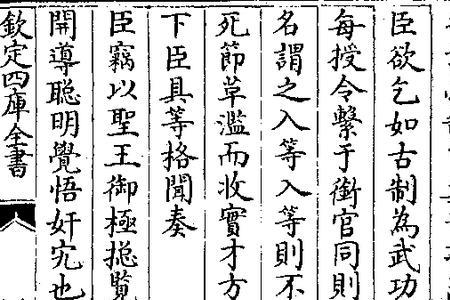 臣欲乞如古制為武功
每授令繫于銜官同則
名謂之入等入等則不
死節草濫而收實才方
下臣具等格聞奏
臣竊以聖王御極揔覽
開導聰明覺悟奸宄也
欽定四庫全書